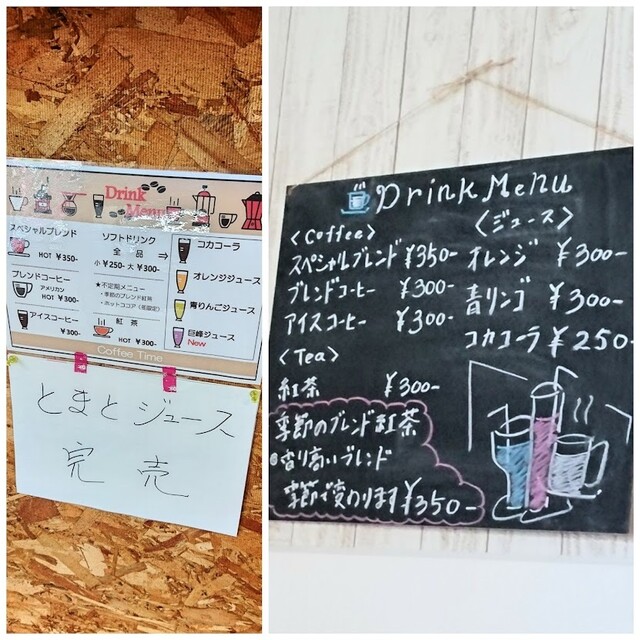 Drink
Menu
スペシャルブレンド
HOT ¥350-
ブレンドコーヒー
アメリカン
HOT ¥300-
アイスコーヒー
¥300-
ソフトドリンク
全品
小¥250- 大¥300-
★不定期メニュー
・季節のブレンド紅茶
・ホットココア（冬限定）
紅茶
HOT ¥300-
⇒
コカコーラ
オレンジジュース
青りんごジュース
巨峰ジュース
New
Coffee Time
とまとジュース
完売
Drink Menu
〈Coffee〉
スペシャルブレンド ¥350-
ブレンドコーヒー ¥300-
アイスコーヒー ¥300-
〈Tea〉
紅茶 ¥300-
季節のブレンド紅茶
◎香り高いブレンド
季節で変わります ¥350-
〈ジュース〉
オレンジ ¥300-
青リンゴ ¥300-
コカコーラ ¥250-